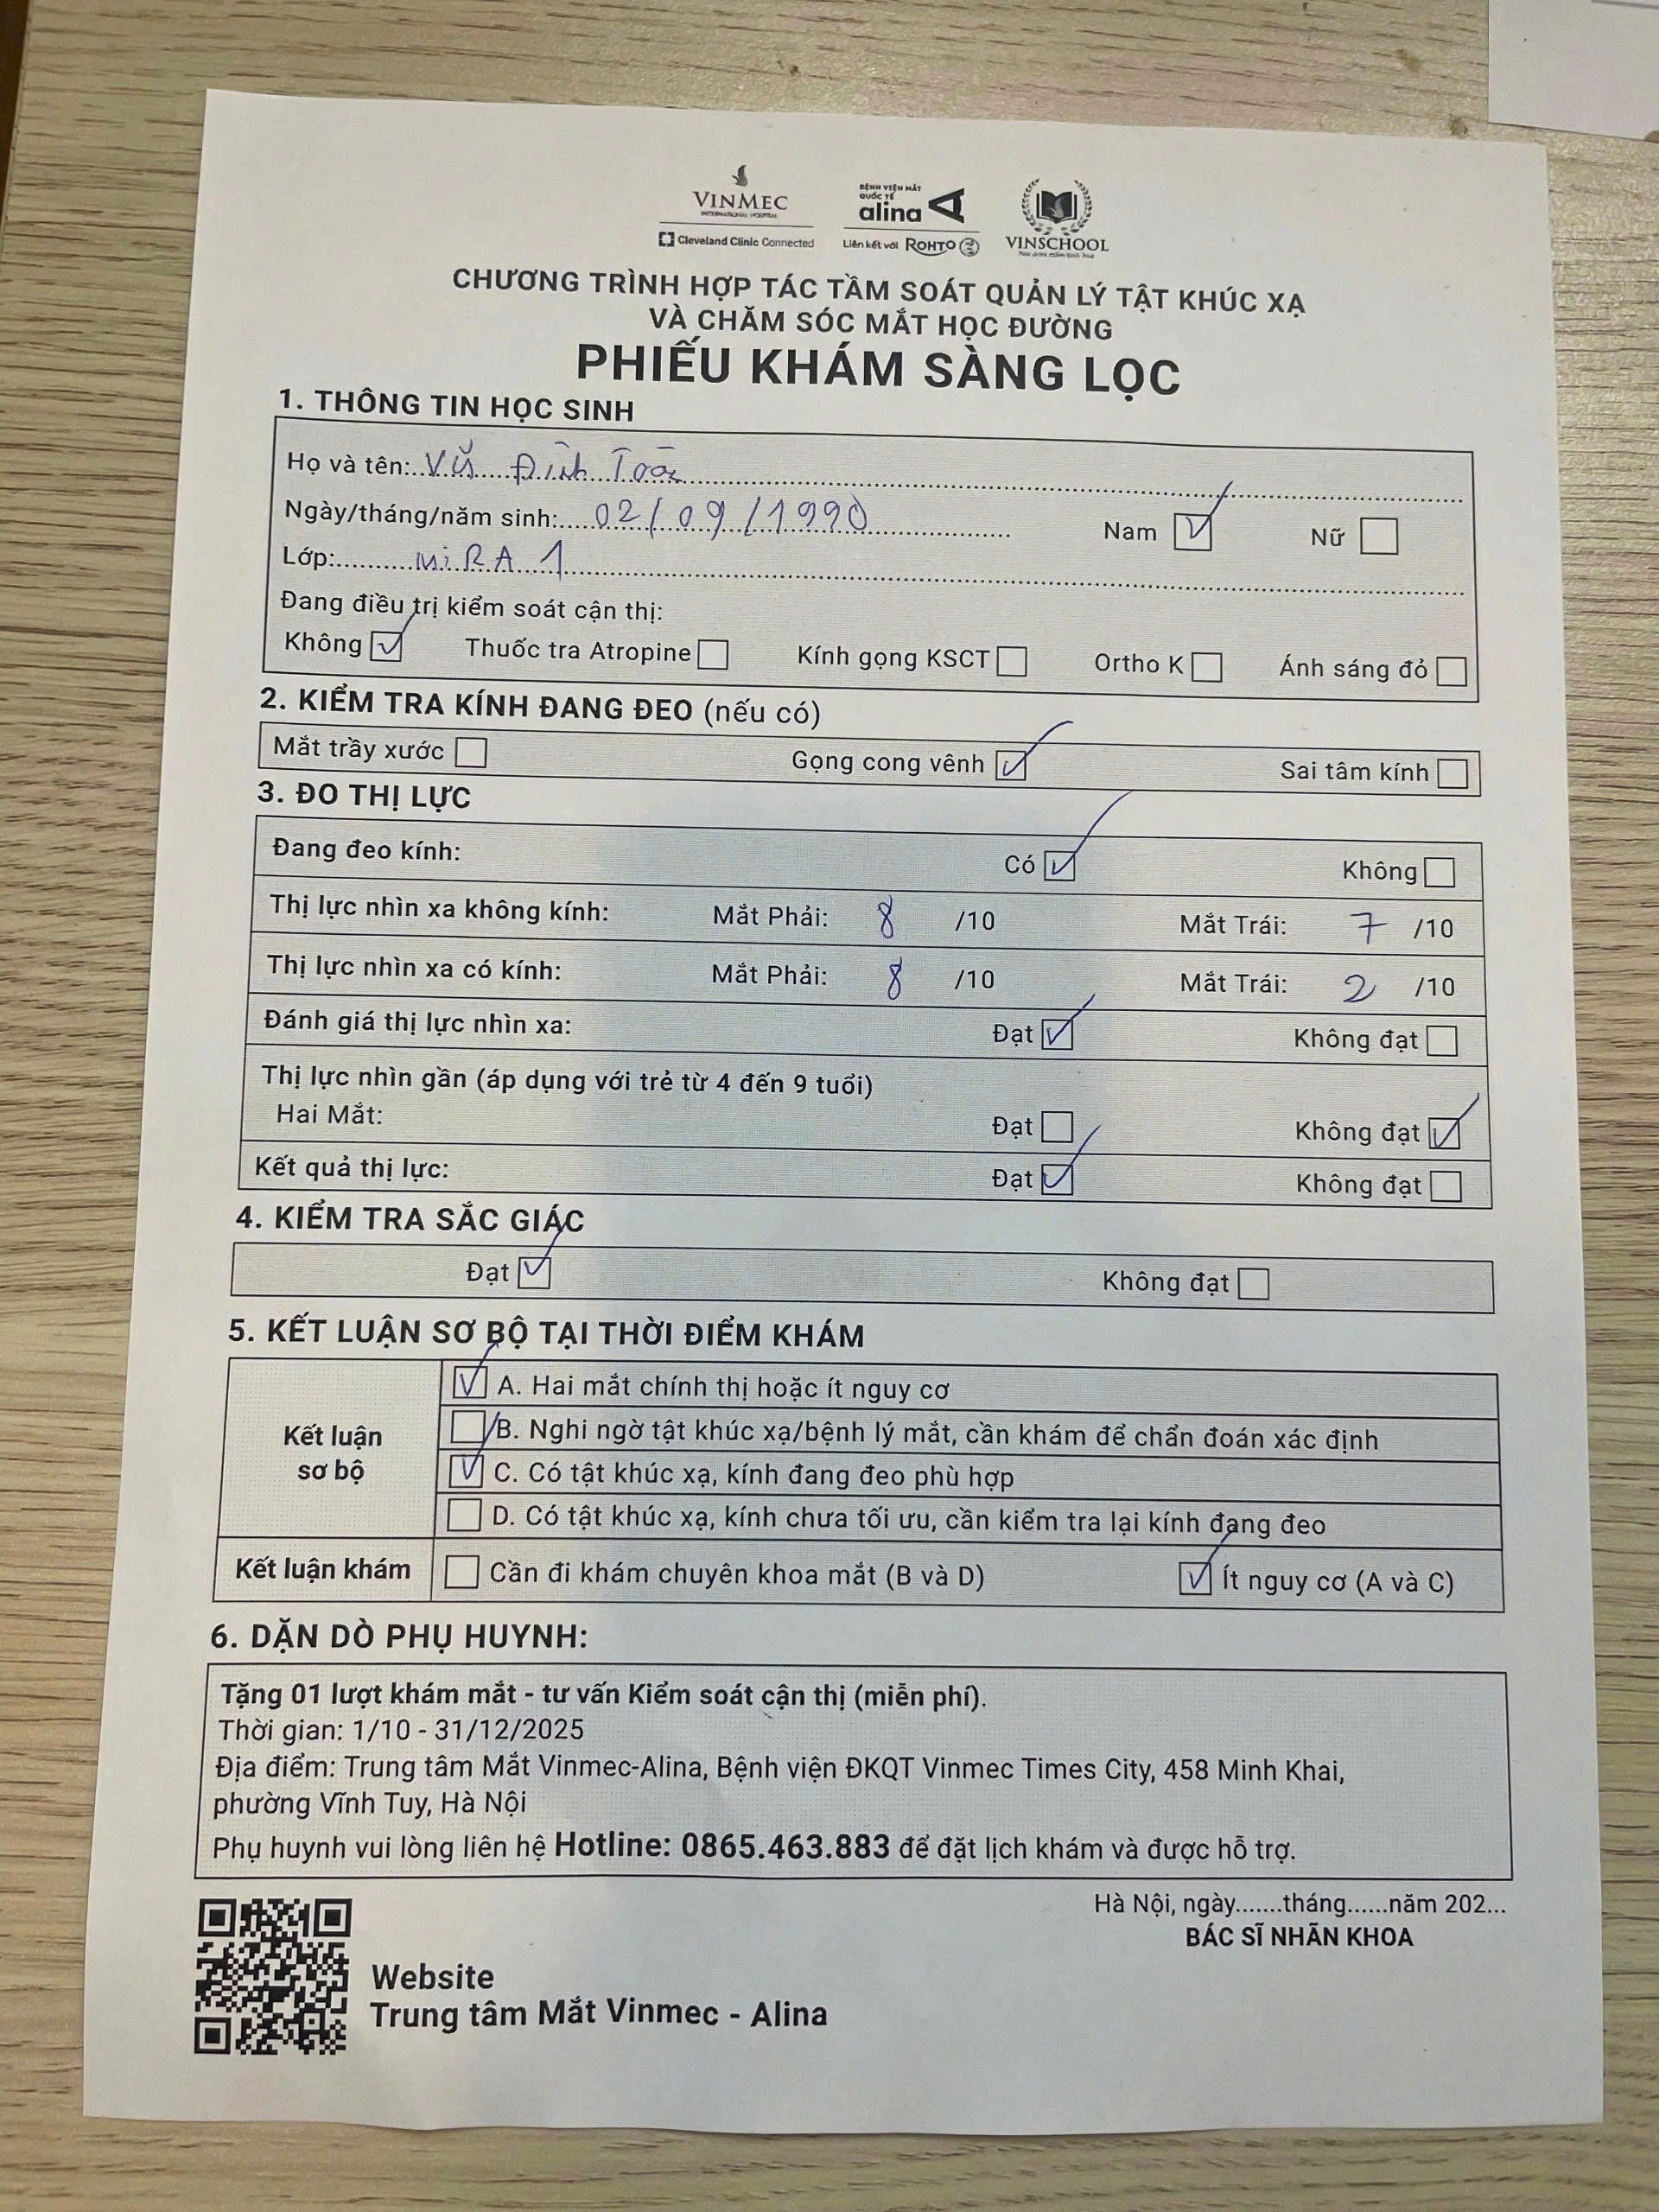 VINMEC
INTERNATIONAL HOSPITAL
Cleveland Clinic Connected
BỆNH VIỆN MẮT
QUỐC TẾ
alina
Liên kết với ROHTO
VINSCHOOL
CHƯƠNG TRÌNH HỢP TÁC TẦM SOÁT QUẢN LÝ TẬT KHÚC XẠ
VÀ CHĂM SÓC MẮT HỌC ĐƯỜNG
PHIẾU KHÁM SÀNG LỌC
1. THÔNG TIN HỌC SINH
Họ và tên: Vũ Đình Toàn
Ngày/tháng/năm sinh: 02/09/1990 Nam ☑ Nữ ☐
Lớp: MiRA 1
Đang điều trị kiểm soát cận thị:
Không ☑ Thuốc tra Atropine ☐ Kính gọng KSCT ☐ Ortho K ☐ Ánh sáng đỏ ☐
2. KIỂM TRA KÍNH ĐANG ĐEO (nếu có)
Mắt trầy xước ☐ Gọng cong vênh ☑ Sai tâm kính ☐
3. ĐO THỊ LỰC
Đang đeo kính: Có ☑ Không ☐
Thị lực nhìn xa không kính: Mắt Phải: 8 /10 Mắt Trái: 7 /10
Thị lực nhìn xa có kính: Mắt Phải: 8 /10 Mắt Trái: 2 /10
Đánh giá thị lực nhìn xa: Đạt ☑ Không đạt ☐
Thị lực nhìn gần (áp dụng với trẻ từ 4 đến 9 tuổi)
Hai Mắt: Đạt ☐ Không đạt ☑
Kết quả thị lực: Đạt ☑ Không đạt ☐
4. KIỂM TRA SẮC GIÁC
Đạt ☑ Không đạt ☐
5. KẾT LUẬN SƠ BỘ TẠI THỜI ĐIỂM KHÁM
Kết luận sơ bộ
☑ A. Hai mắt chính thị hoặc ít nguy cơ
☐ B. Nghi ngờ tật khúc xạ/bệnh lý mắt, cần khám để chẩn đoán xác định
☑ C. Có tật khúc xạ, kính đang đeo phù hợp
☐ D. Có tật khúc xạ, kính chưa tối ưu, cần kiểm tra lại kính đang đeo
Kết luận khám ☐ Cần đi khám chuyên khoa mắt (B và D) ☑ Ít nguy cơ (A và C)
6. DẶN DÒ PHỤ HUYNH:
Tặng 01 lượt khám mắt - tư vấn Kiểm soát cận thị (miễn phí).
Thời gian: 1/10 - 31/12/2025
Địa điểm: Trung tâm Mắt Vinmec-Alina, Bệnh viện ĐKQT Vinmec Times City, 458 Minh Khai,
phường Vĩnh Tuy, Hà Nội
Phụ huynh vui lòng liên hệ Hotline: 0865.463.883 để đặt lịch khám và được hỗ trợ.
Hà Nội, ngày.......tháng......năm 202...
BÁC SĨ NHÃN KHOA
Website
Trung tâm Mắt Vinmec - Alina